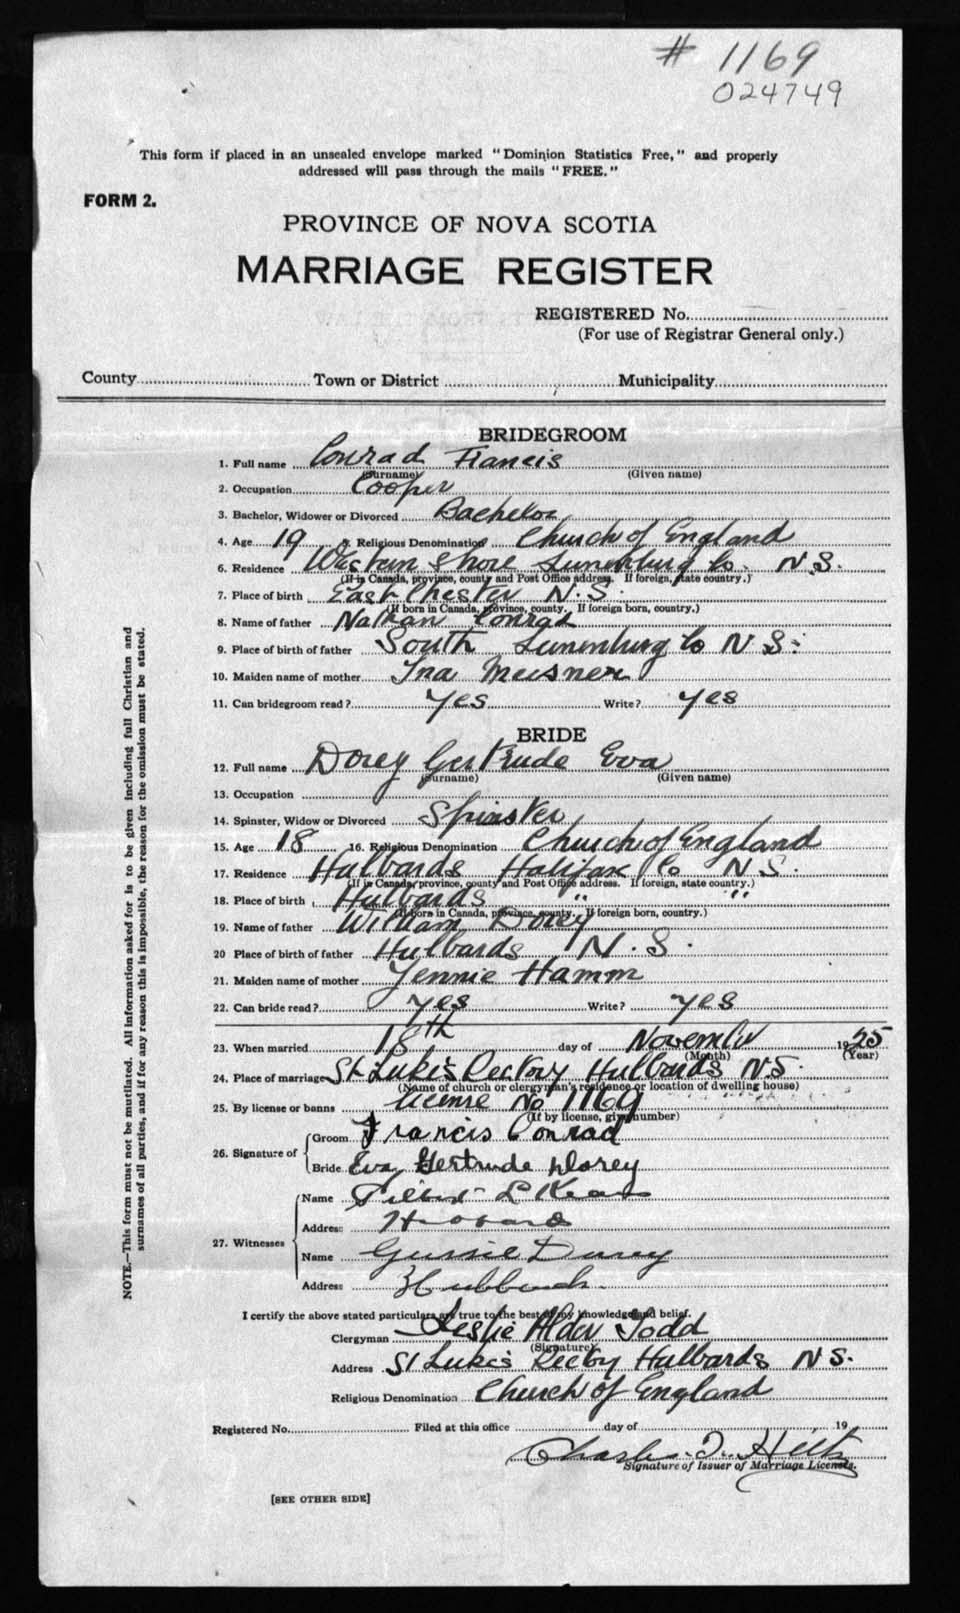 # 1169
024749
This form if placed in an unsealed envelope marked "Dominion Statistics Free," and properly
addressed will pass through the mails "FREE."
FORM 2.
PROVINCE OF NOVA SCOTIA
MARRIAGE REGISTER
REGISTERED No.
(For use of Registrar General only.)
County Town or District Municipality
BRIDEGROOM
1. Full name Conrad Francis
(Surname) (Given name)
2. Occupation Cooper
3. Bachelor, Widower or Divorced Bachelor
4. Age 19 5. Religious Denomination Church of England
6. Residence Western Shore Lunenburg Co. N.S.
(If in Canada, province, county and Post Office address. If foreign, state country.)
7. Place of birth East Chester N.S.
(If born in Canada, province, county. If foreign born, country.)
8. Name of father Nathan Conrad
9. Place of birth of father South Lunenburg Co N S.
10. Maiden name of mother Ina Meisner
11. Can bridegroom read? Yes Write? yes
BRIDE
12. Full name Dorey Gertrude Eva
(Surname) (Given name)
13. Occupation
14. Spinster, Widow or Divorced Spinster
15. Age 18 16. Religious Denomination Church of England
17. Residence Hulbards Halifax Co N S.
(If in Canada, province, county and Post Office address. If foreign, state country.)
18. Place of birth Hulbards " "
(If born in Canada, province, county. If foreign born, country.)
19. Name of father William Dorey
20 Place of birth of father Hulbards N. S.
21. Maiden name of mother Jennie Hamm
22. Can bride read? yes Write? yes
23. When married 18th day of November 1925
(Month) (Year)
24. Place of marriage St Luke's Rectory Hulbards N.S.
(Name of church or clergyman's residence or location of dwelling house)
25. By license or banns license No 1169
(If by license, give number)
26. Signature of
Groom Francis Conrad
Bride Eva Gertrude Dorey
27. Witnesses
Name
Address Hubbards
Name Gussie Dorey
Address Hubbards.
I certify the above stated particulars are true to the best of my knowledge and belief.
Clergyman Leslie Alder Todd
(Signature)
Address St Luke's Rectory Hulbards N S.
Religious Denomination Church of England
Registered No. Filed at this office day of 19
Charles
Signature of Issuer of Marriage Licenses.
[SEE OTHER SIDE]
NOTE.—This form must not be mutilated. All information asked for is to be given including full Christian and
surnames of all parties, and if for any reason this is impossible, the reason for the omission must be stated.